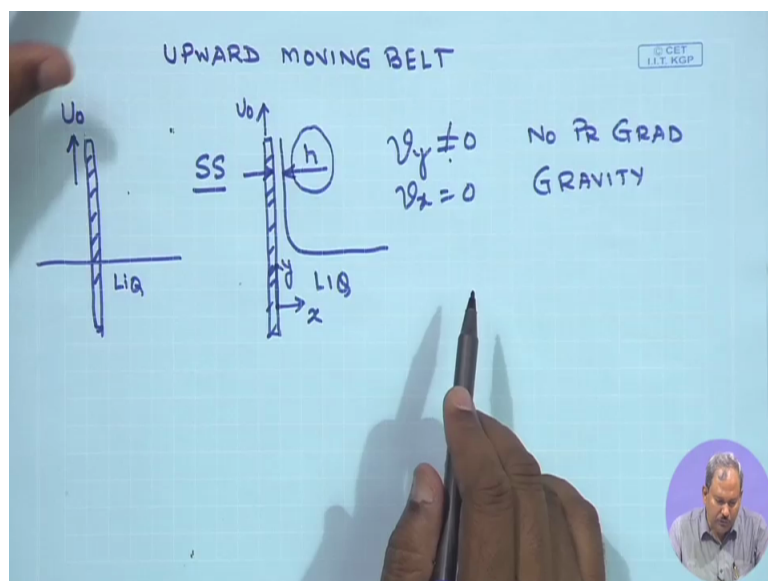 UPWARD MOVING BELT
© CET
I.I.T. KGP
U₀
LIQ
U₀
SS
h
y
LIQ
x
υy ≠ 0
υx = 0
NO PR GRAD
GRAVITY